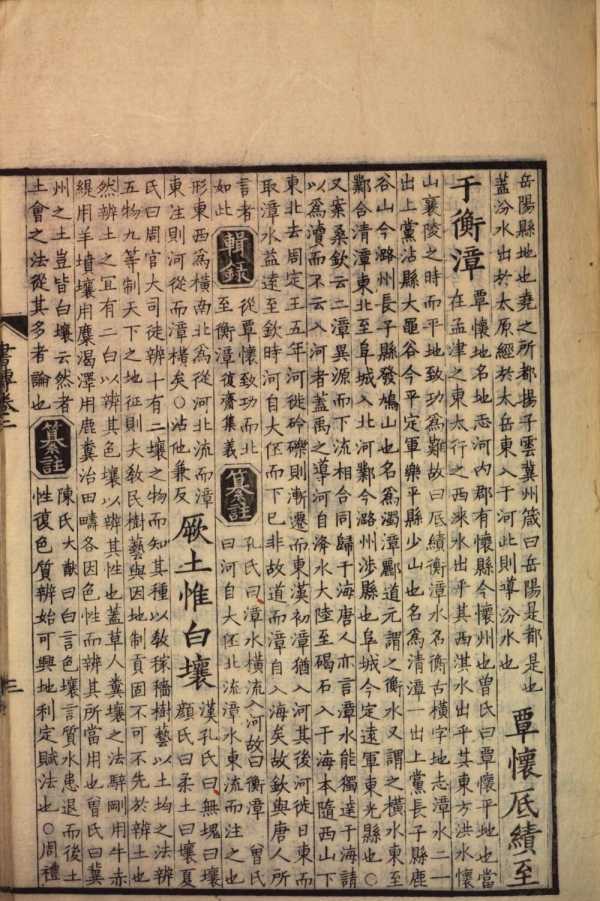 岳陽縣地也堯之所都揚子雲冀州箴曰岳陽是都是也
蓋汾水出於太原經於太岳東入于河此則導汾水也
覃懷厎績至
于衡漳
覃懷地名地志河內郡有懷縣今懷州也曾氏曰覃懷平地也當
在孟津之東太行之西淶水出乎其西淇水出乎其東方洪水懷
山襄陵之時而平地致功爲難故曰厎績衡漳水名衡古橫字地志漳水二一
出上黨沾縣大黽谷今平定軍樂平縣少山也名爲清漳一出上黨長子縣鹿
谷山今潞州長子縣發鳩山也名爲濁漳酈道元謂之衡水又謂之橫水東至
鄴合清漳東北至阜城入北河鄴今潞州涉縣也阜城今定遠軍東光縣也○
又案桑欽云二漳異源而下流相合同歸于海唐人亦言漳水能獨達于海請
以爲瀆而不云入河者蓋禹之導河自洚水大陸至碣石入于海本隨西山下
東北去周定王五年河徙砱礫則漸遷而東漢初漳猶入河其後河徙日東而
取漳水益遠至欽時河自大伾而下已非故道而漳自入海矣故欽與唐人所
言者
如此
輯錄
從覃懷致功而北
至衡漳復齋集義
纂註
孔氏曰漳水橫流入河故曰衡漳 曾氏
曰河自大伾北流漳水東流而注之也
形東西爲橫南北爲從河北流而漳
東注則河從而漳橫矣○沾他兼反
厥土惟白壤
漢孔氏曰無塊曰壤
顏氏曰柔土曰壤夏
氏曰周官大司徒辨十有二壤之物而知其種以教稼穡樹藝以土均之法辨
五物九等制天下之地征則夫教民樹藝與因地制貢固不可不先於辨土也
然辨土之宜有二白以辨其色壤以辨其性也蓋草人糞壤之法騂剛用牛赤
緹用羊墳壤用麋渴澤用鹿糞治田疇各因色性而辨其所當用也曾氏曰冀
州之土豈皆白壤云然者
土會之法從其多者論也
纂註
陳氏大猷曰白言色壤言質水患退而後土
性復色質辨始可興地利定賦法也○周禮
書傳卷
三